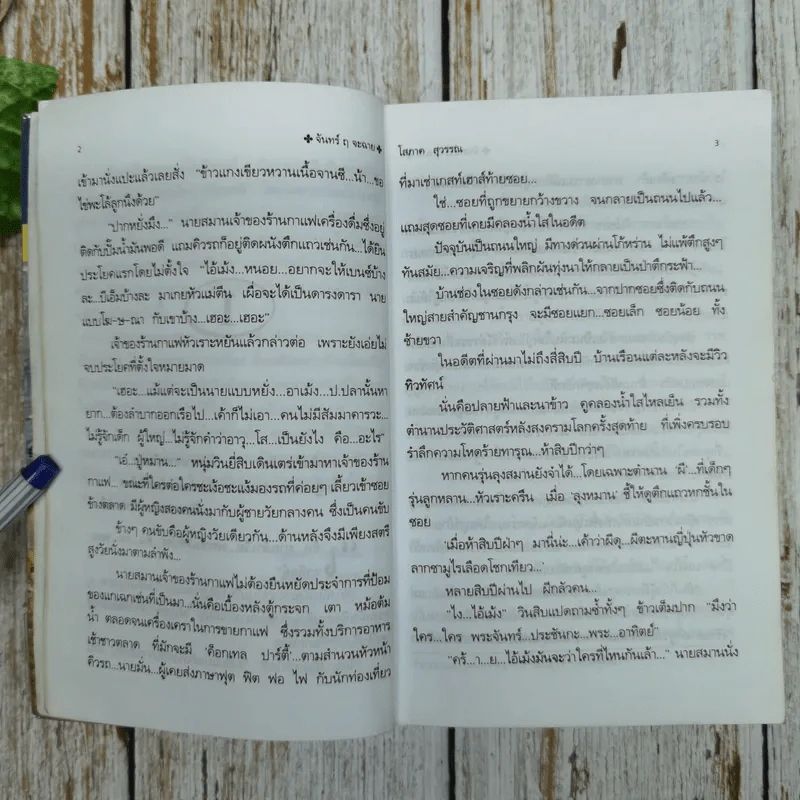 2
✤ จันทร์ ฤ จะฉาย ✤
เข้ามานั่งแปะแล้วเลยสั่ง "ข้าวแกงเขียวหวานเนื้อจานซี...น้า...ขอ
ไข่พะโล้ลูกนึงด้วย"
"ปากหยั่งมึง..." นายสมานเจ้าของร้านกาแฟเครื่องดื่มซึ่งอยู่
ติดกับปั๊มน้ำมันพอดี แถมคิวรถก็อยู่ติดผนังตึกแถวเช่นกัน...ได้ยิน
ประโยคแรกโดยไม่ตั้งใจ "ไอ้เม้ง...หนอย...อยากจะให้เบนซ์บ้าง
ละ...บีเอ็มบ้างละ มาเกยหัวแม่ตีน เผื่อจะได้เป็นดารงดารา นาย
แบบโฆ-ษ-ณา กับเขาบ้าง...เฮอะ...เฮอะ"
เจ้าของร้านกาแฟหัวเราะหยันแล้วกล่าวต่อ เพราะยังเอ่ยไม่
จบประโยคที่ตั้งใจหมายมาด
"เฮอะ...แม้แต่จะเป็นนายแบบหยั่ง...อาเม้ง...ป.ปลานั้นหา
ยาก...ต้องลำบากออกเรือไป...เค้าก็ไม่เอา...คนไม่มีสัมมาคารวะ...
ไม่รู้จักเด็ก ผู้ใหญ่...ไม่รู้จักคำว่าอาวุ...โส...เป็นยังไง คือ...อะไร"
"เอ๋...ปู่หม่าน..." หนุ่มวินยี่สิบเดินเตร่เข้ามาหาเจ้าของร้าน
กาแฟ... ขณะที่ใครต่อใครชะเง้อชะแง้มองรถที่ค่อยๆ เลี้ยวเข้าซอย
ข้างตลาด มีผู้หญิงสองคนนั่งมากับผู้ชายวัยกลางคน ซึ่งเป็นคนขับ
ข้างๆ คนขับคือผู้หญิงวัยเดียวกัน...ด้านหลังจึงมีเพียงสตรี
สูงวัยนั่งมาตามลำพัง...
นายสมานเจ้าของร้านกาแฟไม่ต้องยืนหยัดประจำการที่ป้อม
ของแกเฉกเช่นที่เป็นมา...นั่นคือเบื้องหลังตู้กระจก เตา หม้อต้ม
น้ำ ตลอดจนเครื่องเคราในการขายกาแฟ ซึ่งรวมทั้งบริการอาหาร
เช้าชาวตลาด ที่มักจะมี 'ค็อกเทล ปาร์ตี้'...ตามสำนวนหัวหน้า
คิวรถ...นายมั่น...ผู้เคยส่งภาษาฟุต ฟิต ฟอ ไฟ กับนักท่องเที่ยว
โสภาค สุวรรณ
3
ที่มาเช่าเกสท์เฮาส์ท้ายซอย...
ใช่...ซอยที่ถูกขยายกว้างขวาง จนกลายเป็นถนนไปแล้ว...
แถมสุดซอยที่เคยมีคลองน้ำใสในอดีต
ปัจจุบันเป็นถนนใหญ่ มีทางด่วนผ่านโก้หร่าน ไม่แพ้ตึกสูงๆ
ทันสมัย...ความเจริญที่พลิกผันทุ่งนาให้กลายเป็นป่าตึกระฟ้า...
บ้านช่องในซอยดังกล่าวเช่นกัน...จากปากซอยซึ่งติดกับถนน
ใหญ่สายสำคัญชานกรุง จะมีซอยแยก...ซอยเล็ก ซอยน้อย ทั้ง
ซ้ายขวา
ในอดีตที่ผ่านมาไม่ถึงสี่สิบปี บ้านเรือนแต่ละหลังจะมีวิว
ทิวทัศน์
นั่นคือปลายฟ้าและนาข้าว คูคลองน้ำใสไหลเย็น รวมทั้ง
ตำนานประวัติศาสตร์หลังสงครามโลกครั้งสุดท้าย ที่เพิ่งครบรอบ
รำลึกความโหดร้ายทารุณ...ห้าสิบปีกว่าๆ
หากคนรุ่นลุงสมานยังจำได้...โดยเฉพาะตำนาน 'ผี'...ที่เด็กๆ
รุ่นลูกหลาน...หัวเราะครืน เมื่อ 'ลุงหมาน' ชี้ให้ดูตึกแถวหกชั้นใน
ซอย
'เมื่อห้าสิบปีฝ่าๆ มานี่น่ะ...เค้าว่าผีดุ...ผีตะหานญี่ปุ่นหัวขาด
ลากซามูไรเลือดโชกเทียว...'
หลายสิบปีผ่านไป ผีกลัวคน...
"ไง...ไอ้เม้ง" วินสิบแปดถามซ้ำทั้งๆ ข้าวเต็มปาก "มึงว่า
ใคร...ใคร พระจันทร์...ประชันกะ...พระ...อาทิตย์"
"คร้...า...ย...ไอ้เม้งมันจะว่าใครที่ไหนกันเล้า..." นายสมานนั่ง